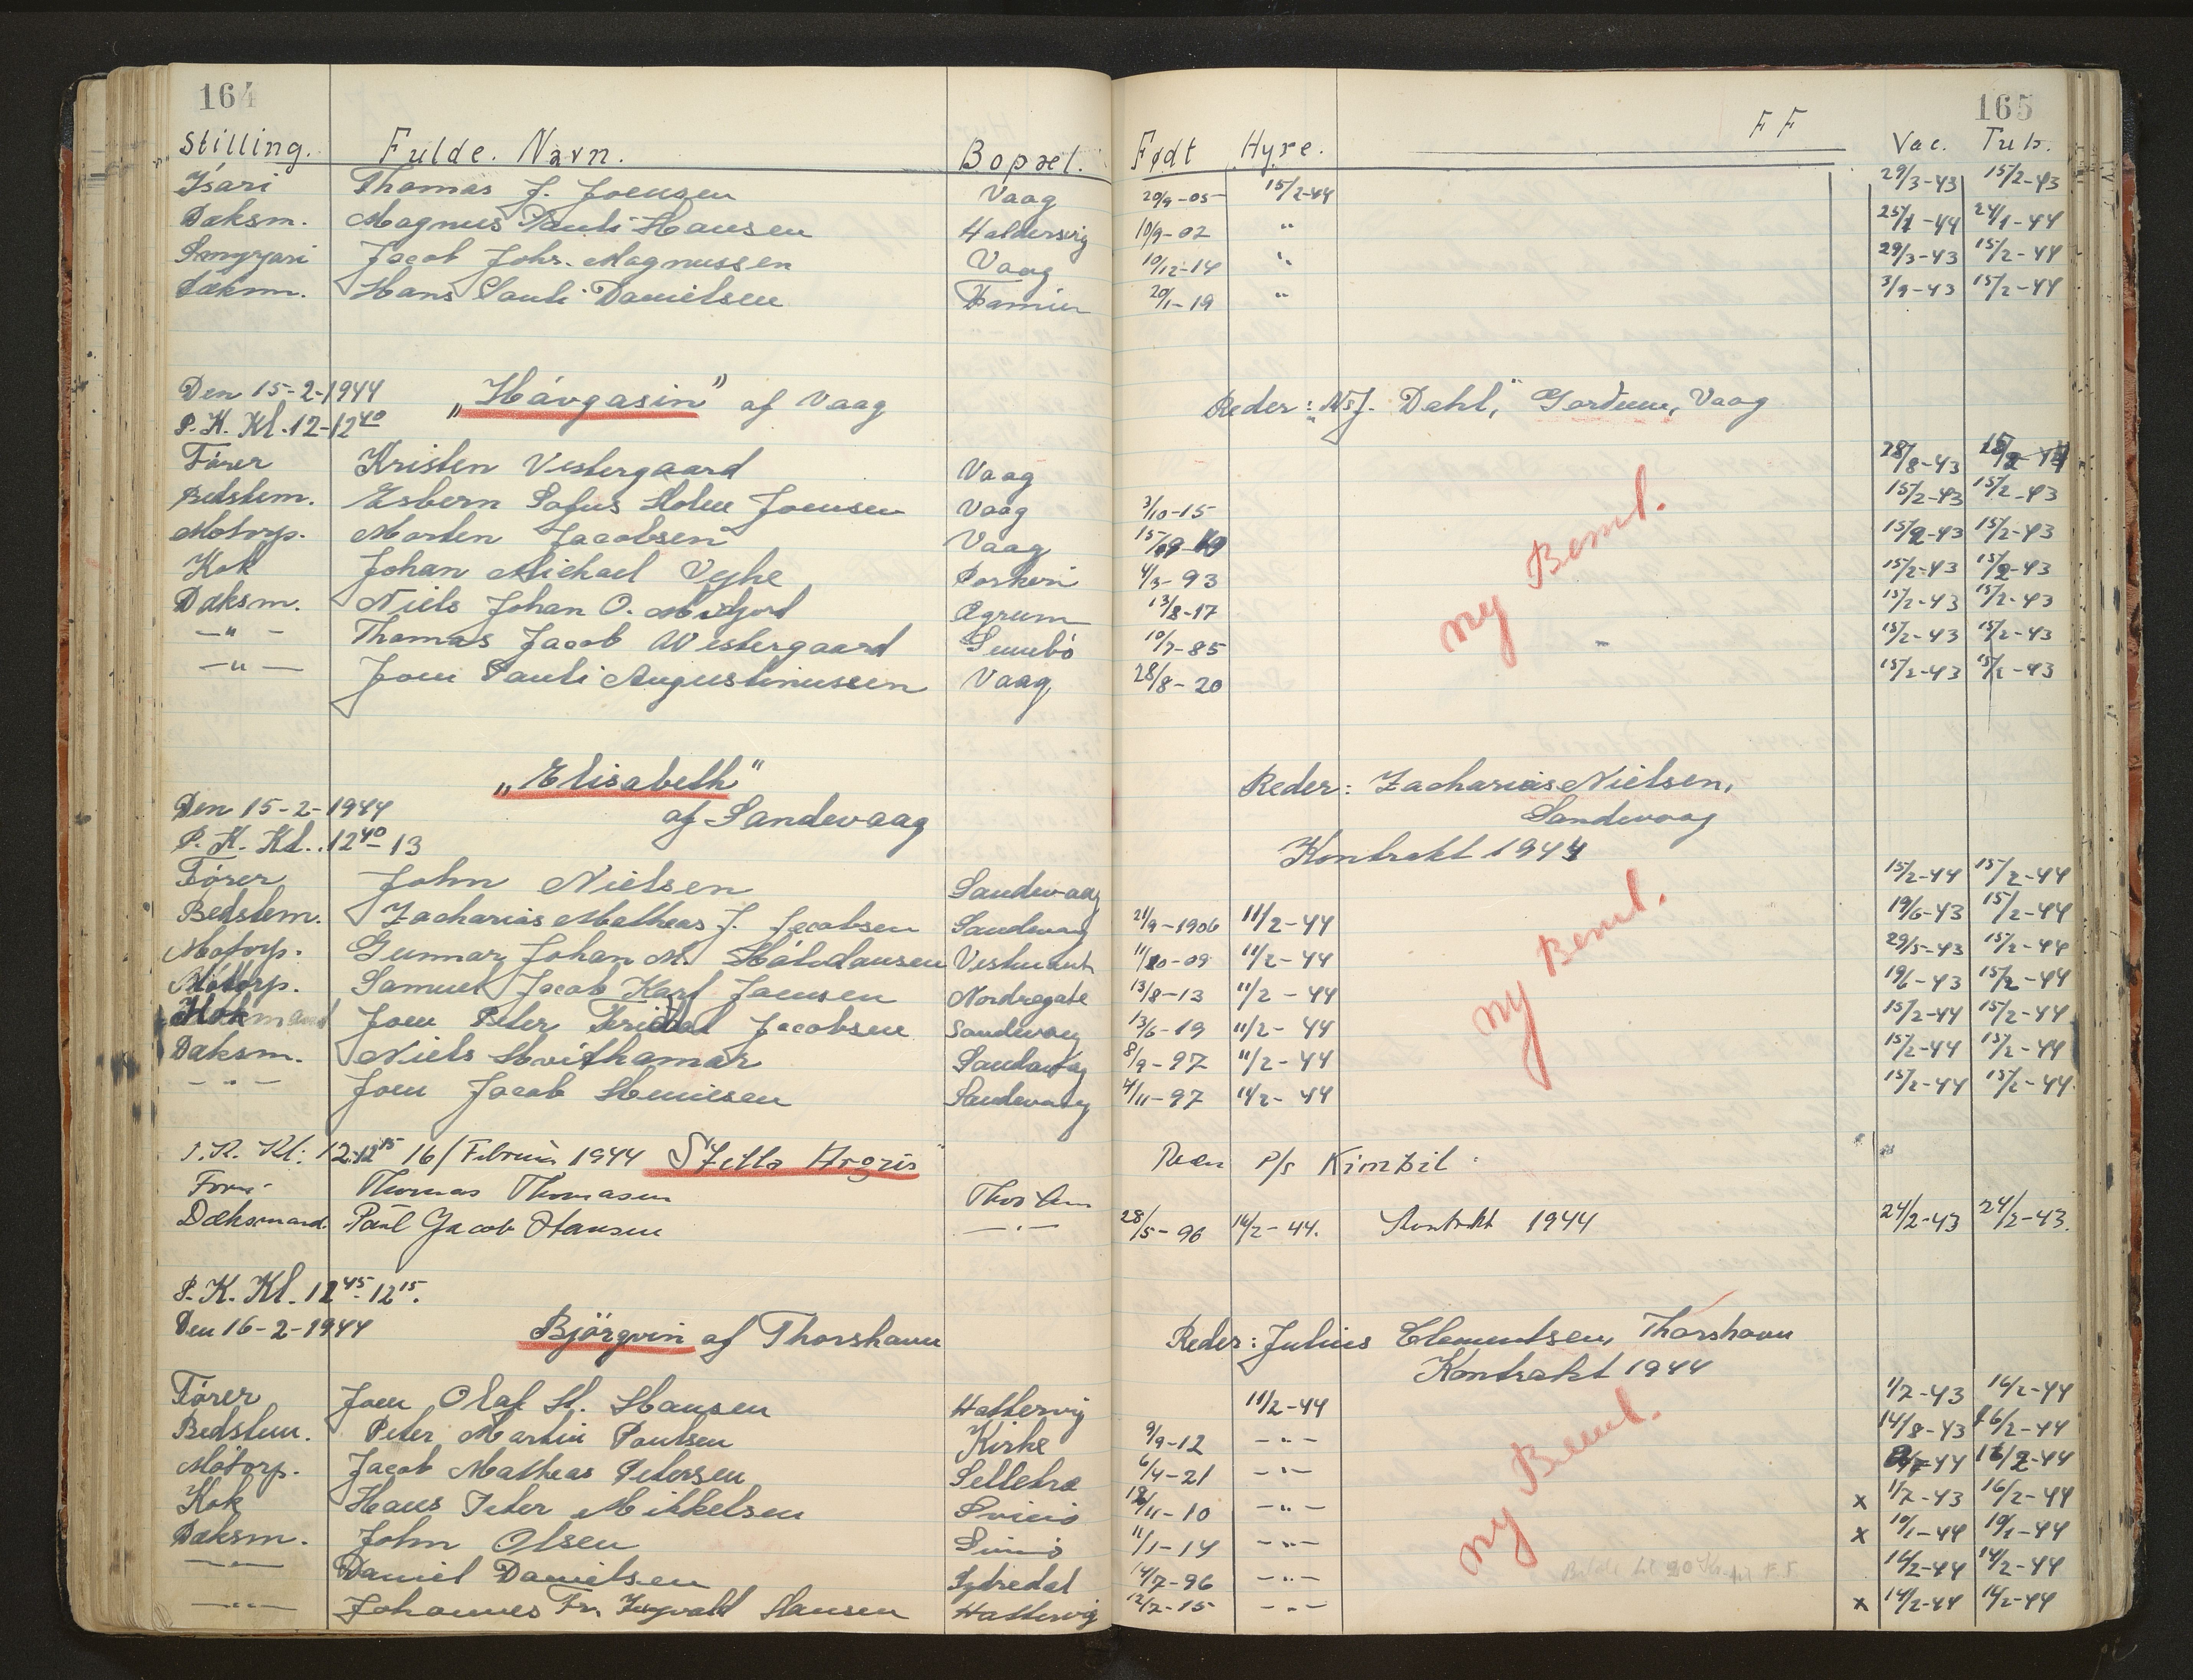 164 165
Stilling. Fulde. Navn. Bopæl. Født Hyre. FF Vac. Tub.
Ísari Thomas J. Joensen Vaag 20/9-05 15/2-44 29/3-43 15/2-43
Dæksm. Magnus Pauli Hansen Haldersvig 10/9-02 " 25/1-44 24/1-44
Jacob Johs. Magnussen Vaag 10/12-14 " 29/3-43 15/2-44
Dæksm. Hans Pauli Danielsen Famien 20/1-19 " 3/9-43 15/2-44
Den 15-2-1944 „Hávgasin” af Vaag Reder: Dahl, Gerdum, Vaag
P.K. Kl. 12-12 40
Fører Kristen Vestergaard Vaag 28/8-43
Bedstem. Esbern Sofus Holm Joensen Vaag 3/10-15 15/2-43 15/2-43
Motorp. Morten Jacobsen Vaag 15/2-43 15/2-43
Kok Johan Michael Vyhe Porkeri 4/3-93 15/2-43 15/2-43
Dæksm. Niels Johan O. Midjord Øgrum 13/8-17 15/2-43 15/2-43
-"- Thomas Jacob Westergaard Sumbø 10/7-85 15/2-43 15/2-43
-"- Joen Pauli Augustinussen Vaag 28/8-20 15/2-43 15/2-43
ny Beml.
„Elisabeth” Reder: Zacharias Nielsen,
Den 15-2-1944 af Sandevaag Sandevaag
P.K. Kl. 12 40-13 Kontrakt 1944
Fører John Nielsen Sandevaag 15/2-44 15/2-44
Bedstem. Zacharias Matheas J. Jacobsen Sandevaag 21/9-1906 11/2-44 19/6-43 15/2-44
Motorp. Gunnar Johan M. Hálvdansen Vestmanh 11/10-09 11/2-44 29/5-43 15/2-44
Motorp. Samuel Jacob Karl Joensen Nordragøte 13/8-13 11/2-44 19/6-43 15/2-44
Joen Peter Jacobsen Sandevaag 13/6-19 11/2-44 15/2-44 15/2-44
Dæksm. Niels Hvithamar Sandavág 8/9-97 11/2-44 15/2-44 15/2-44
-"- Joen Jacob Heinesen Sandevaag 4/11-97 11/2-44 15/2-44 15/2-44
ny Beml.
P.K. Kl: 12-12 15 16/Februar 1944 Stella Argus” P/s Kimbil.
Thomas Thomasen
Dæksmand. Pául Jacob Hansen -"- 28/5-90 16/2-44. Kontrakt 1944 24/2-43 24/2-43.
P.K. Kl. 12 45-12 15.
Den 16-2-1944 Björgvin af Thorshavn Reder: Julius Clementsen, Thorshavn
Kontrakt 1944
Fører Joen Olaf H. Hansen Hattervig 11/2-44 1/7-43 16/2-44
Bedstem. Peter Martin Poulsen Kirke 9/9-12 -"- 14/8-43 16/2-44
Motorp. Jacob Matheas Petersen Selletræ 6/4-21 -"- 16/2-44
Kok Hans Peter Mikkelsen Svinø -"- x 1/7-43 16/2-44
Dæksm. John Olsen Svinø 11/1-14 -"- x 19/1-44 19/1-44
-"- Daniel Danielsen Sydredal 14/7-96 -"- 16/2-44 16/2-44
-"- Johannes Fr. Hansen Hattervig 12/2-15 -"- x 14/2-44 16/2-44
ny Beml.